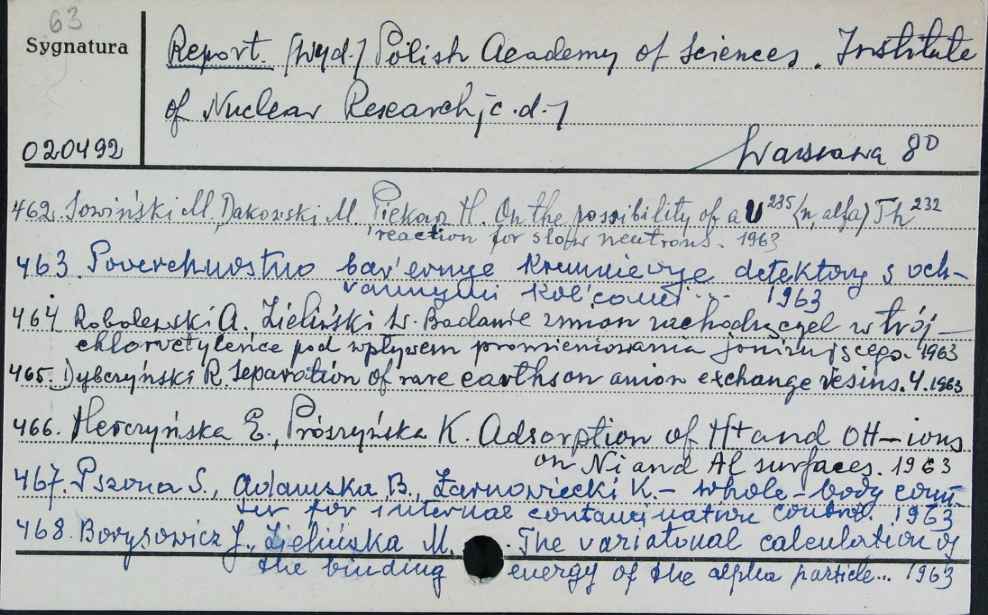 63
Sygnatura
020492
Report. [Wyd.] Polish Academy of Sciences. Institute
of Nuclear Research, [c.d.]
Warszawa 8°
462. Sowiński M., Dakowski M. Piekarz H. On the possibility of a U235 (n, alfa) Th232
reaction for slow neutrons. 1963
463. Poverchnostno bar'ernye kremnievye detektory s och-
rannymi kol'cami... 1963
464 Robolewski A., Zieliński W. Badanie zmian zachodzących w trój-
chloroetylence pod wpływem promieniowania jonizującego. 1963
465. Dybczyński R. Separation of rare earths on anion exchange resins. 4. 1963
466. Herczyńska E., Prószyńska K. Adsorption of H+ and OH- ions
on Ni and Al surfaces. 1963
467. Pszona S., Adamska B., Żarnowiecki K. - Whole-body coun-
ter for internal contamination control. 1963
468. Borysowicz J., Zielińska M. . The variational calculation of
the binding energy of the alpha particle... 1963